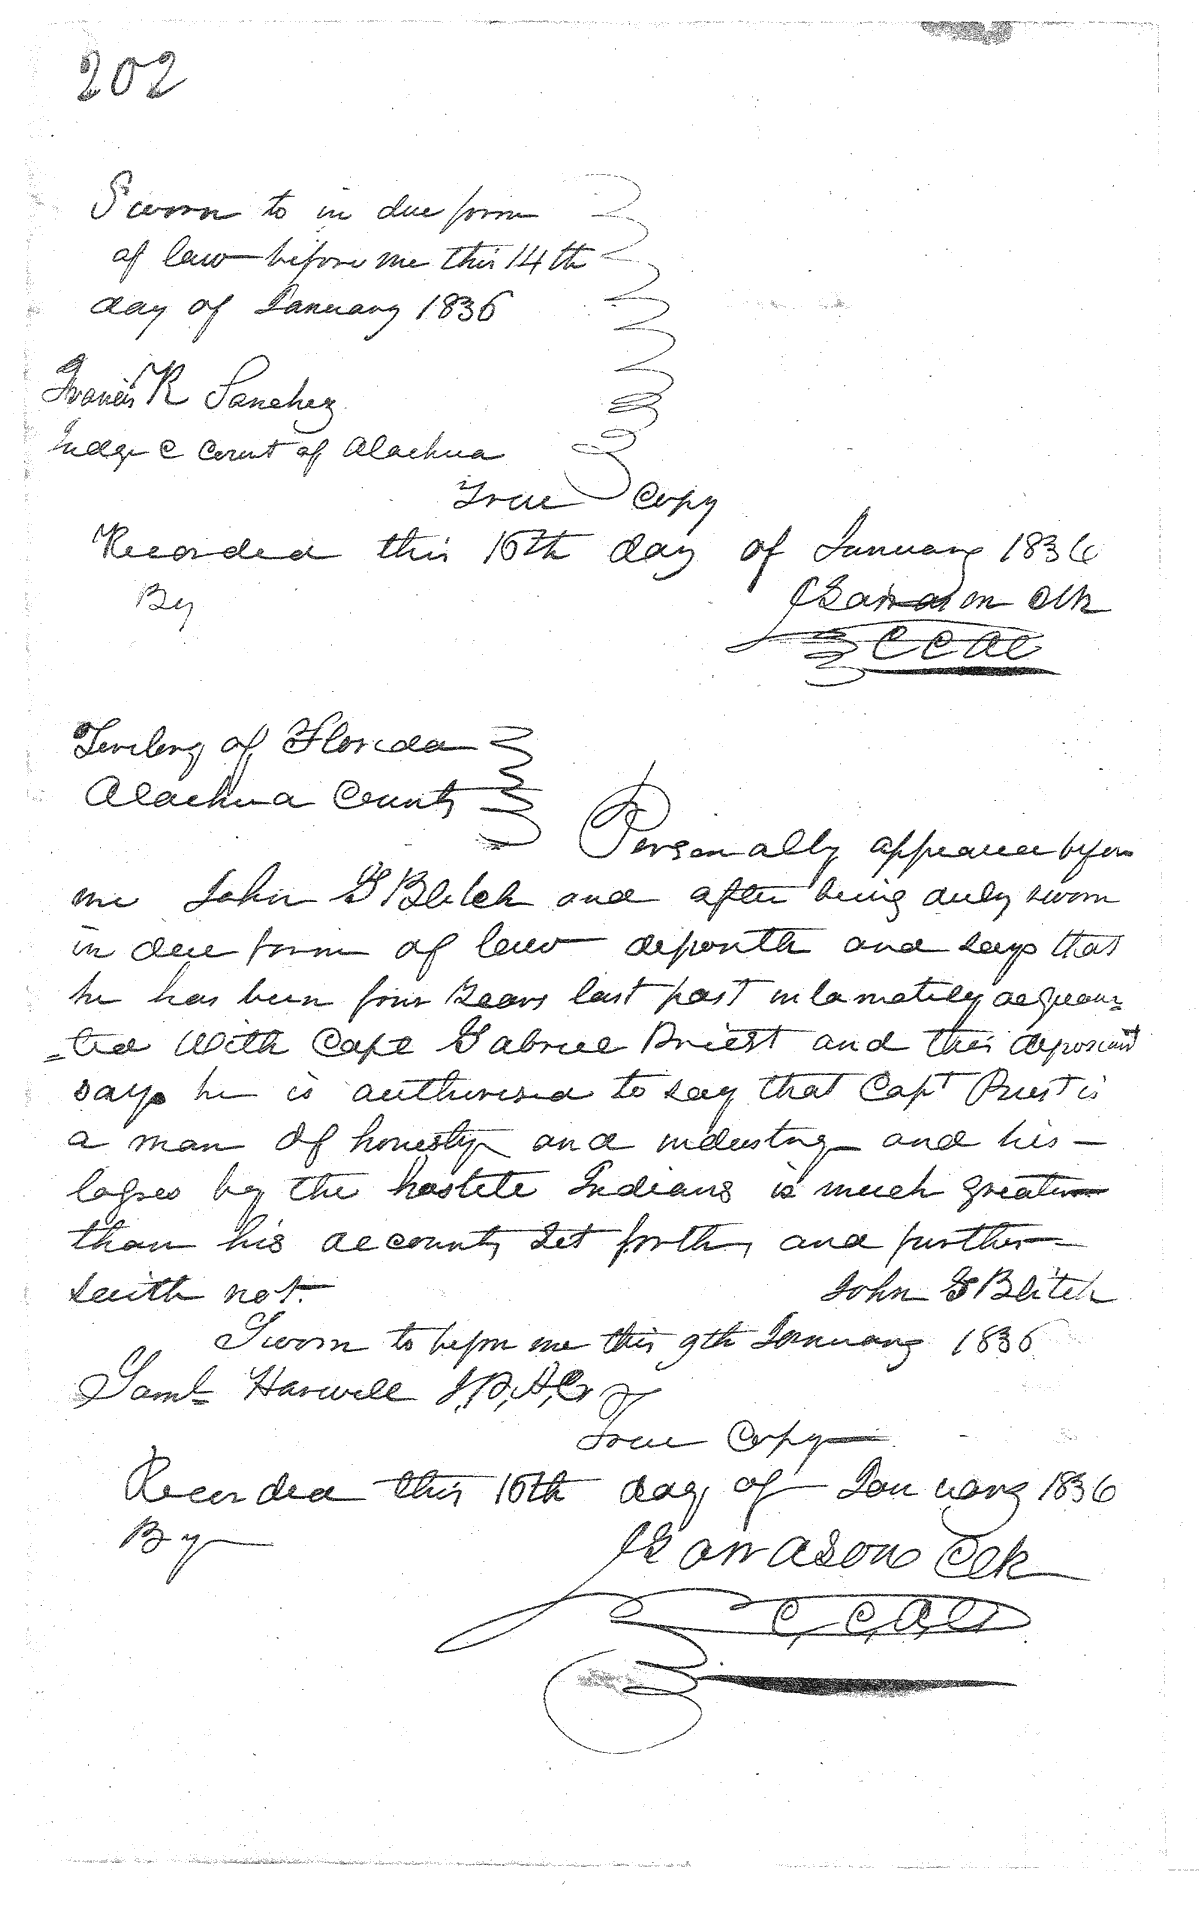 202
Sworn to in due form
of law before me this 14th
day of January 1836
Francis R Sanchez
Judge C Court of Alachua
True Copy
Recorded this 15th day of January 1836
By
Clk
C C A C
Territory of Florida
Alachua County
Personally appeared before
me John G Blitch and after being duly sworn
in due form of law deposith and says that
he has been four years last past intamately acquain=
=ted With Capt Gabriel Priest and this deposiant
says he is authorised to say that Capt Priest is
a man of honesty and industry and his —
losses by the hostile Indians is much greater
than his account, set forth, and further
saith not. John G Blitch
Sworn to before me this 9th January 1836
Saml Harwell J, P, A, Co
True Copy
Recorded this 15th day of January 1836
By
Clk
C, C, A, C